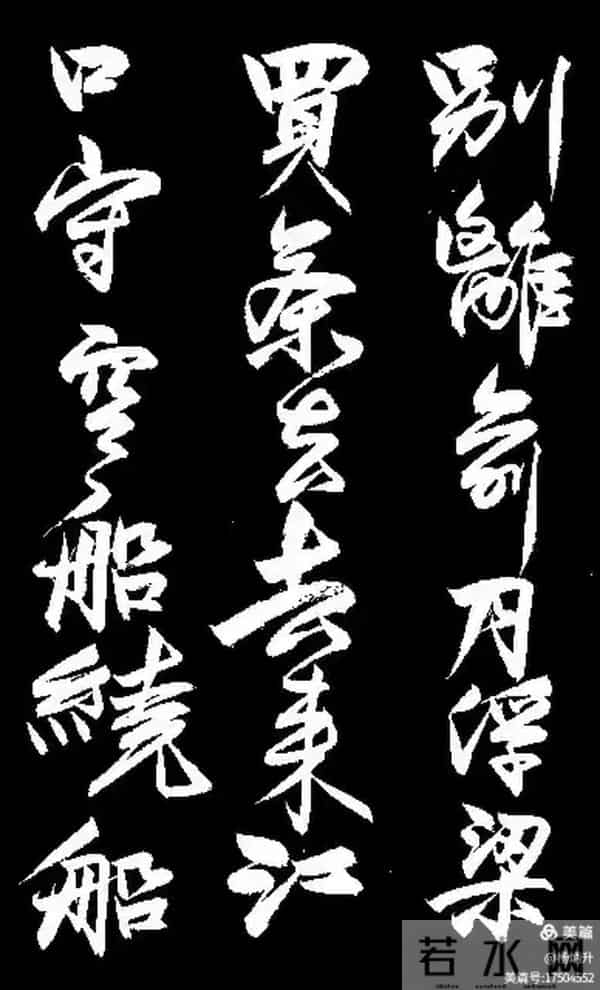 别離前月浮梁
買茶去去来江
口守空船繞船
若水网
美篇
美篇号:17504552